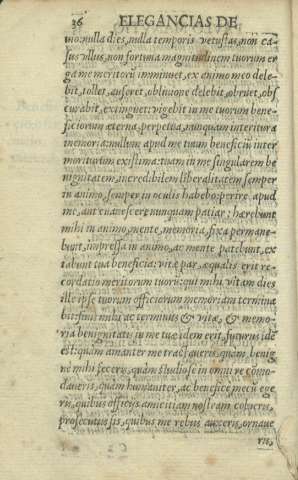 36 ELEGANCIAS DE
mo: nulla dies, nulla temporis vetustas, non ca-
sus vllus, non fortuna magnitudinem tuorum er
ga me meritorũ imminuet, ex animo meo dele
bit, tollet, auferet, obliuione delebit, obruet, obs
curabit, extinguet: vigebit in me tuorum bene-
ficiorum æterna, perpetua, nunquam interitura
memoria: nullum apud me tuum beneficiũ inter
moriturum existima: tuam in me singularem be
nignitatem, incredibilem liberalitatem semper
in animo, semper in oculis habebo: perire apud
me, aut euanescere nunquam patiar; hærebunt
mihi in animo, mente, memoria, fixa permane-
bunt, impressa in animo, ac mente patebunt, ex
tabunt tua beneficia: vitæ par, æqualis erit re-
cordatio meritorum tuorũ: qui mihi vitam dies
ille ipse tuorum officiorum memoriam termina
bit: finis mihi ac terminus & vitæ, & memo-
ria benignitatis in me tuæ idem erit, futurus idẽ
est: quam amanter me tractaueris, quam benig
ne mihi feceris, quam studiose in omni re cõmo-
daueris, quam humaniter, ac benefice mecũ ege
ris, quibus officijs amicitiam nostram colueris,
prosecutus sis, quibus me rebus auxeris, ornaue
ris,